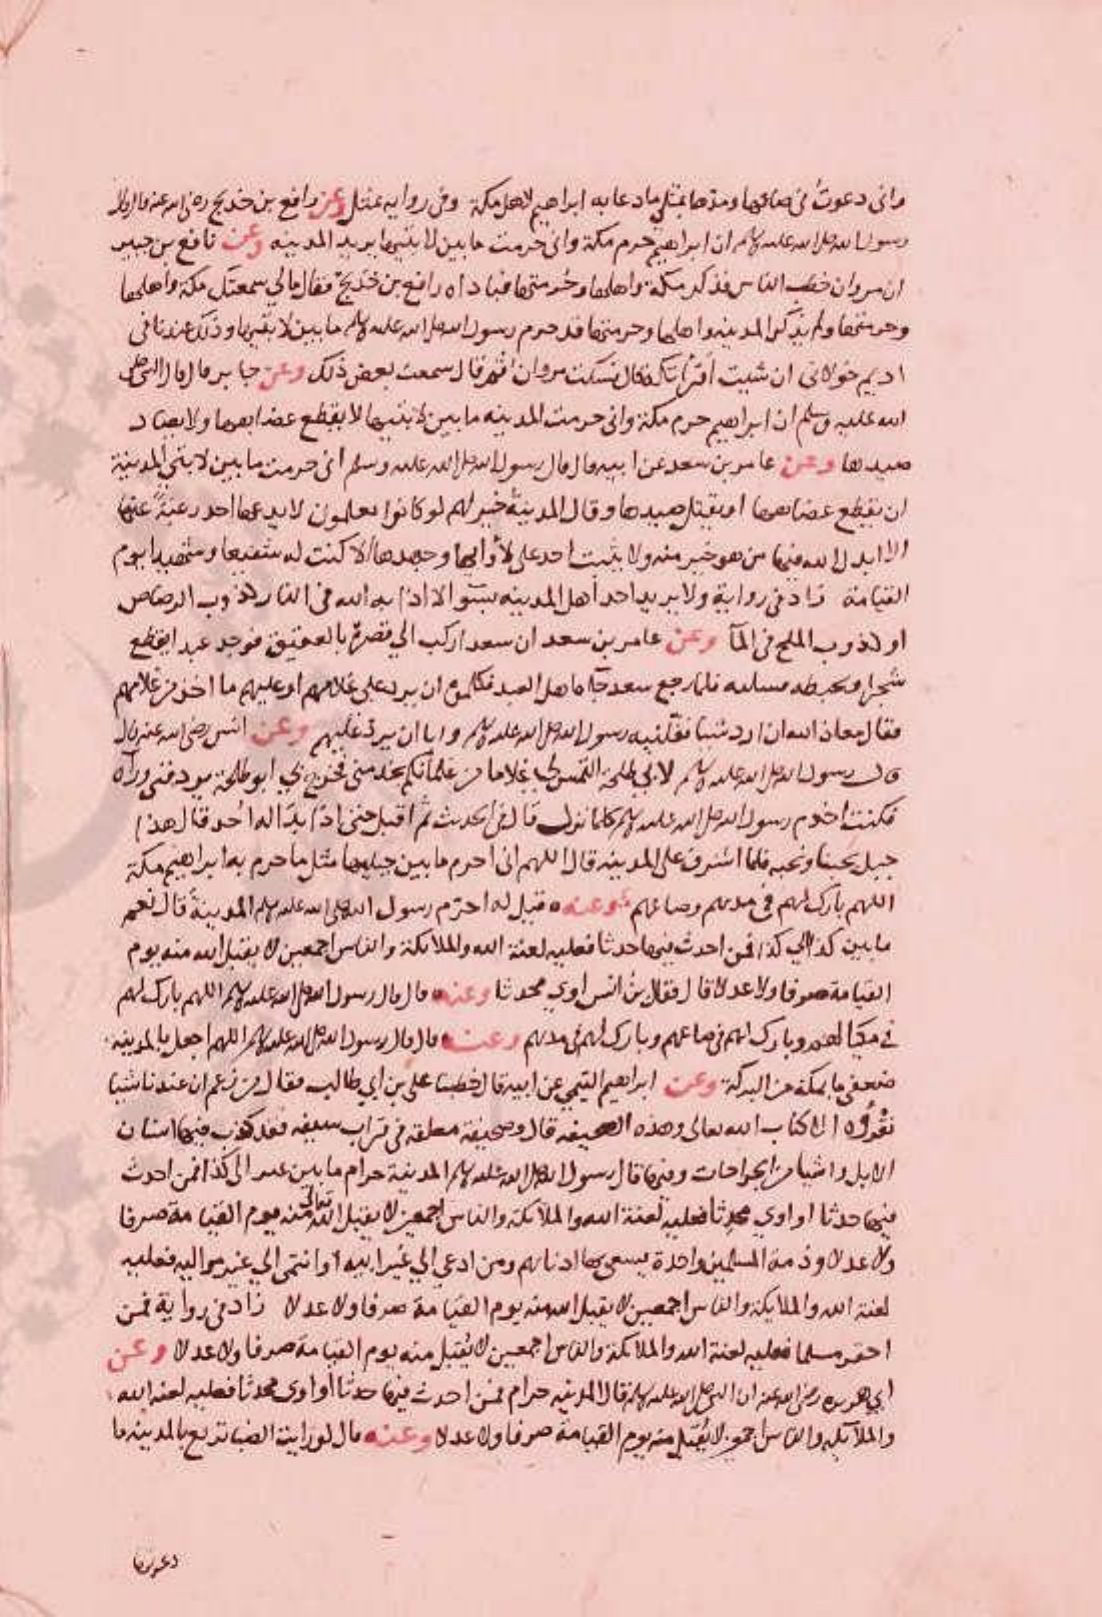 واني دعوت في صاعها ومدها بمثل مادعا به ابراهيم لاهل مكة وفي رواية بمثل وعن رافع بن خديج رضي الله عنه قال قال
رسول الله صلى الله عليه وسلم ان ابراهيم حرم مكة واني حرمت ما بين لابتيها يريد المدينه وعن نافع بن جبير
ان مروان خطب الناس فذكر مكة واهلها وحرمتها فناداه رافع بن خديج فقال مالي سمعتك مكة واهلها
وحرمتها ولم يذكر المدينه واهلها وحرمتها قد حرم رسول الله صلى الله عليه وسلم ما بين لابتيها وذلك عندنا في
اديم خولاني ان شيت اقرأتكه قال فسكت مروان ثم قال سمعت بعض ذلك وعن جابر قال قال النبي صلى
الله عليه وسلم ان ابراهيم حرم مكة واني حرمت المدينه ما بين لابتيها لا يقطع عضاهها ولا يصاد
صيدها وعن عامر بن سعد عن ابيه قال قال رسول الله صلى الله عليه وسلم اني حرمت ما بين لابتي المدينة
ان يقطع عضاهها او يقتل صيدها وقال المدينة خير لهم لو كانوا يعلمون لا يدعها احد رغبة عنها
الا ابدل الله فيها من هو خير منه ولا يثبت احد على لأوائها وجهدها الا كنت له شفيعا وشهيدا يوم
القيامة زاد في رواية ولا يريد احد أهل المدينه بسوء الا اذابه الله في النار ذوب الرصاص
او ذوب الملح في المآ وعن عامر بن سعد ان سعدا ركب الي قصره بالعقيق فوجد عبدا يقطع
شجرا ويخبطه فسلبه فلما رجع سعد جآه اهل العبد فكلموه ان يرد على غلامهم او عليهم ما اخذ من غلامهم
فقال معاذ الله ان ارد شيا نفلنيه رسول الله صلى الله عليه وسلم وابا ان يرد عليهم وعن انس رضي الله عنه قال
قال رسول الله صلى الله عليه وسلم لابي طلحة التمس لي غلاما من غلمانكم يخدمني فخرج بي ابو طلحة يردفني ورآه
فكنت اخدم رسول الله صلى الله عليه وسلم كلما نزل قال في الحديث ثم اقبل حتى اذا بدا له احد قال هذا
جبل يحبنا ونحبه فلما اشرف على المدينه قال اللهم اني احرم ما بين جبليها مثل ما حرم به ابراهيم مكة
اللهم بارك لهم في مدهم وصاعهم وعنه قيل له احرم رسول الله صلى الله عليه وسلم المدينة قال نعم
ما بين كذا الي كذا فمن احدث فيها حدثا فعليه لعنة الله والملايكة والناس اجمعين لا يقبل الله منه يوم
القيامة صرفا ولا عدلا قال فقال بن انس او اوي محدثا وعنه قال قال رسول الله صلى الله عليه وسلم اللهم بارك لهم
في مكيالهم وبارك لهم في صاعهم وبارك لهم في مدهم وعنه قال قال رسول الله صلى الله عليه وسلم اللهم اجعل بالمدينه
ضعفي ما بمكة من البركة وعن ابراهيم التيمي عن ابيه قال خطبنا علي بن ابي طالب فقال من زعم ان عندنا شيا
نقرؤه الا كتاب الله تعالى وهذه الصحيفه قال وصحيفة معلقه في قراب سيفه فقد كذب فيها اسنان
الابل واشيا من الجراحات وفيها قال رسول الله صلى الله عليه وسلم المدينة حرام ما بين عير الى كذا فمن احدث
فيها حدثا او اوي محدثا فعليه لعنة الله والملائكة والناس اجمعين لا يقبل الله تعالى منه يوم القيامة صرفا
ولا عدلا وذمة المسلمين واحدة يسعى بها ادناهم ومن ادعى الي غير ابيه او انتمى الي غير مواليه فعليه
لعنة الله والملايكة والناس اجمعين لا يقبل الله منه يوم القيامة صرفا ولا عدلا زاد في رواية فمن
احقر مسلما فعليه لعنة الله والملائكة والناس اجمعين لا يقبل منه يوم القيامة صرفا ولا عدلا وعن
ابي هريره رضي الله عنه ان النبي صلى الله عليه وسلم قال المدينه حرام فمن احدث فيها حدثا او اوى محدثا فعليه لعنة الله
والملائكة والناس اجمعين لا يقبل منه يوم القيامة صرفا ولا عدلا وعنه قال لو رايت الضبا ترتع بالمدينه ما
ذعرتها